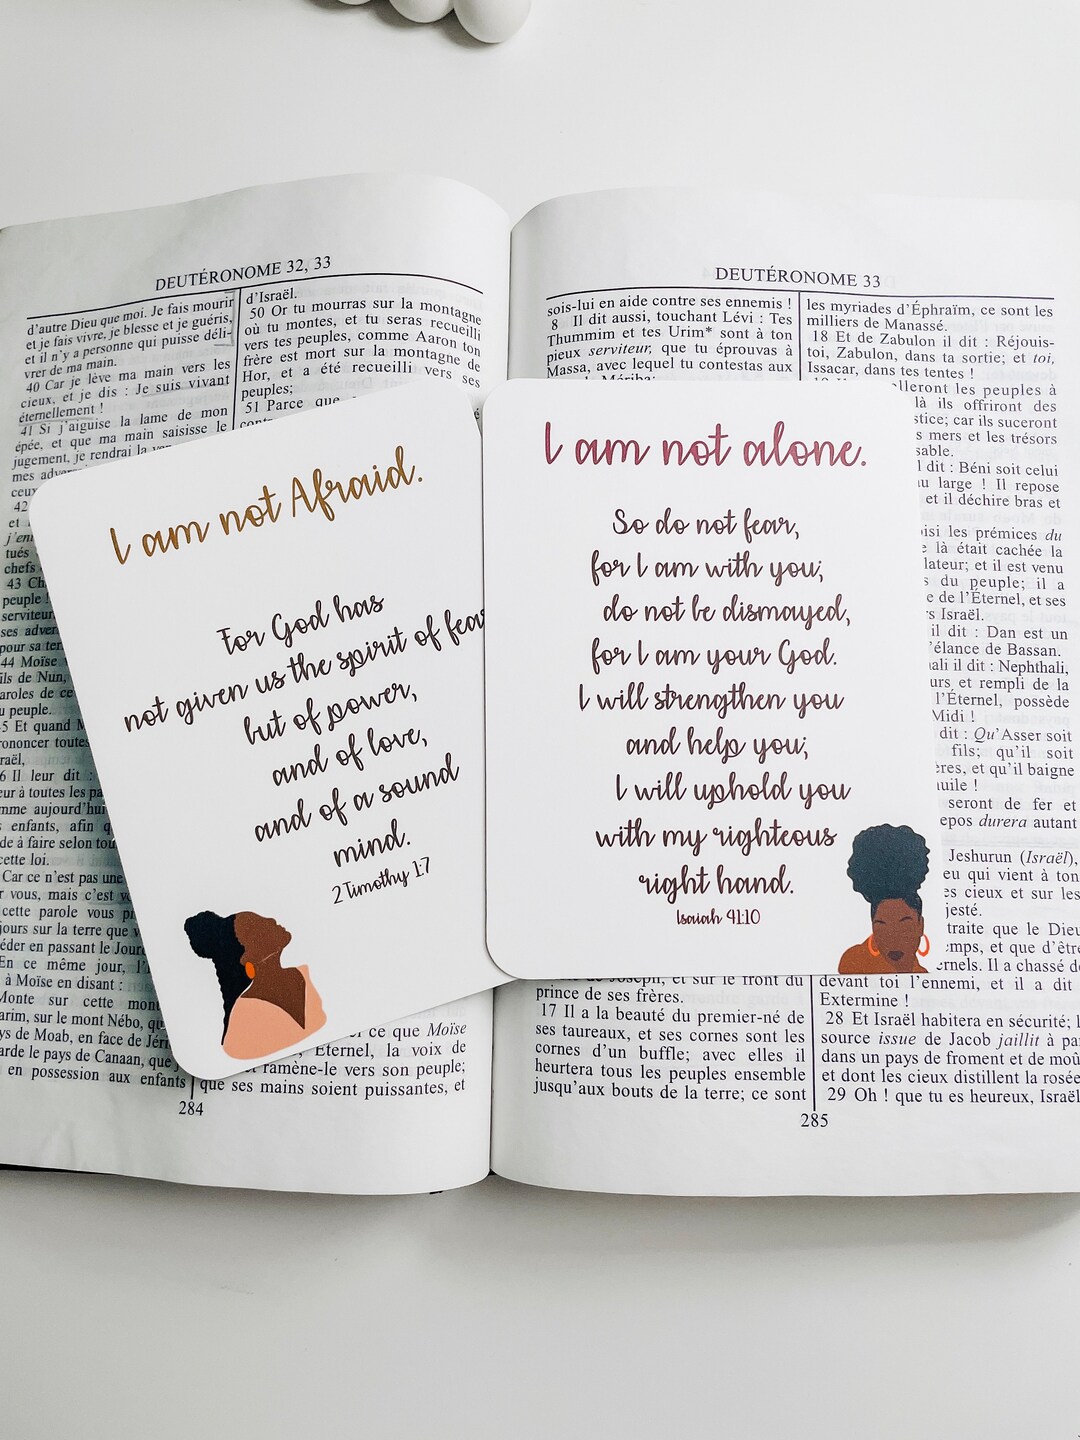 DEUTÉRONOME 32, 33
d'autre Dieu que moi. Je fais mourir
et je fais vivre, je blesse et je guéris,
et il n'y a personne qui puisse déli-
vrer de ma main.
40 Car je lève ma main vers les
cieux, et je dis : Je suis vivant
éternellement !
41 Si j'aiguise la lame de mon
épée, et que ma main saisisse le
jugement, je rendrai la
mes
ceux
42
et
tués
chefs
43
peuple !
serviteur
ses adver
pour sa
44 Moïse
ils de Nun,
aroles de ce
u peuple.
5 Et quand M
rononcer toutes
raël,
6 Il leur dit :
eur à toutes les pa
mme aujourd'hui
enfants, afin q
de à faire selon tou
cette loi.
Car ce n'est pas une
r vous, mais c'est v
cette parole vous p
jours sur la terre que v
éder en passant le Jour
En ce même jour, l'
à Moïse en disant :
Monte sur cette mon
arim, sur le mont Nébo, qu
ys de Moab, en face de Jéri
arde le pays de Canaan, que
en possession aux enfants
d'Israël.
50 Or tu mourras sur la montagne
où tu montes, et tu seras recueilli
vers tes peuples, comme Aaron ton
frère est mort sur la montagne de
Hor, et a été recueilli vers ses
peuples;
51 Parce que
ce que Moïse
Eternel, la voix de
ramène-le vers son peuple;
que ses mains soient puissantes, et
284
I am not Afraid.
For God has
not given us the spirit of fear
but of power,
and of love,
and of a sound
mind.
2 Timothy 1:7
DEUTÉRONOME 33
sois-lui en aide contre ses ennemis !
8 Il dit aussi, touchant Lévi : Tes
Thummim et tes Urim* sont à ton
pieux serviteur, que tu éprouvas à
Massa, avec lequel tu contestas aux
Mériba;
I am not alone.
So do not fear,
for I am with you;
do not be dismayed,
for I am your God.
I will strengthen you
and help you;
I will uphold you
with my righteous
right hand.
Isaiah 41:10
de Joseph, et sur le front du
prince de ses frères.
17 Il a la beauté du premier-né de
ses taureaux, et ses cornes sont les
cornes d'un buffle; avec elles il
heurtera tous les peuples ensemble
jusqu'aux bouts de la terre; ce sont
les myriades d'Éphraïm, ce sont les
milliers de Manassé.
18 Et de Zabulon il dit : Réjouis-
toi, Zabulon, dans ta sortie; et toi,
Issacar, dans tes tentes !
lleront les peuples à
là ils offriront des
stice; car ils suceront
s mers et les trésors
sable.
dit : Béni soit celui
au large ! Il repose
et il déchire bras et
isi les prémices du
e là était cachée la
lateur; et il est venu
s du peuple; il a
e de l'Éternel, et ses
rs Israël.
il dit : Dan est un
'élance de Bassan.
ali il dit : Nephthali,
urs et rempli de la
l'Éternel, possède
Midi !
dit : Qu'Asser soit
fils; qu'il soit
ères, et qu'il baigne
huile !
seront de fer et
epos durera autant
Jeshurun (Israël),
eu qui vient à ton
es cieux et sur les
jesté.
traite que le Dieu
emps, et que d'être
ernels. Il a chassé de
devant toi l'ennemi, et il a dit :
Extermine !
28 Et Israël habitera en sécurité; l
source issue de Jacob jaillit à pa
dans un pays de froment et de moû
et dont les cieux distillent la rosée
29 Oh ! que tu es heureux, Israël
285